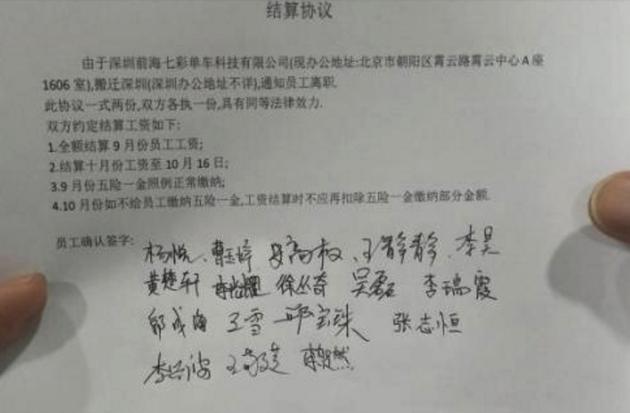 结算协议
由于深圳前海七彩单车科技有限公司(现办公地址:北京市朝阳区霄云路霄云中心A座
1606室),搬迁深圳(深圳办公地址不详),通知员工离职.
此协议一式两份,双方各执一份,具有同等法律效力.
双方约定结算工资如下:
1.全额结算9月份员工工资;
2.结算十月份工资至10月16日;
3.9月份五险一金照例正常缴纳;
4.10月份如不给员工缴纳五险一金,工资结算时不应再扣除五险一金缴纳部分金额.
员工确认签字: 王静静、李昊
黄楚轩 徐丛奇 吴磊 李瑞霞
王雪 邱宝珠 张志恒